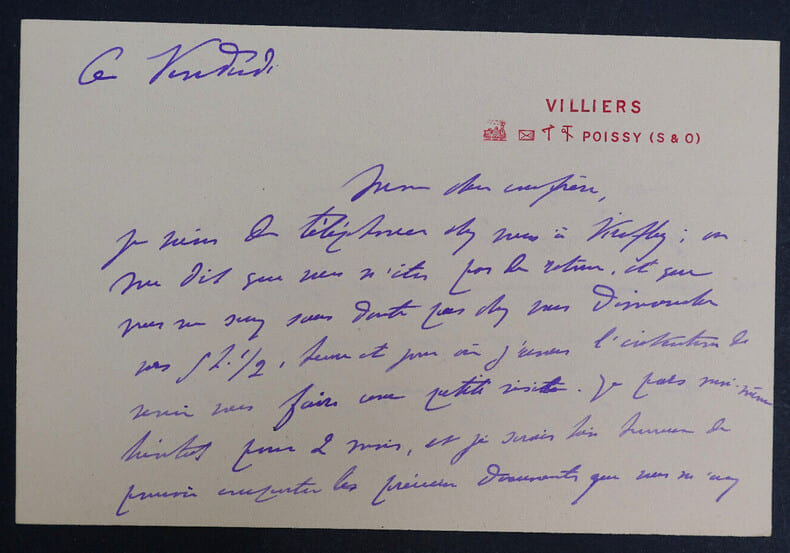 Ce Vendredi
VILLIERS
POISSY (S & O)
Mon cher confrère,
Je viens de téléphoner chez vous à Viroflay ; on
me dit que vous n'êtes pas de retour, et que
vous ne serez sans doute pas chez vous Dimanche
vers 5 h. 1/2, heure et jour où j'avais l'intention de
venir vous faire une petite visite. Je pars moi-même
bientôt pour 2 mois, et je serais bien heureux de
pouvoir emporter les précieux documents que vous m'avez